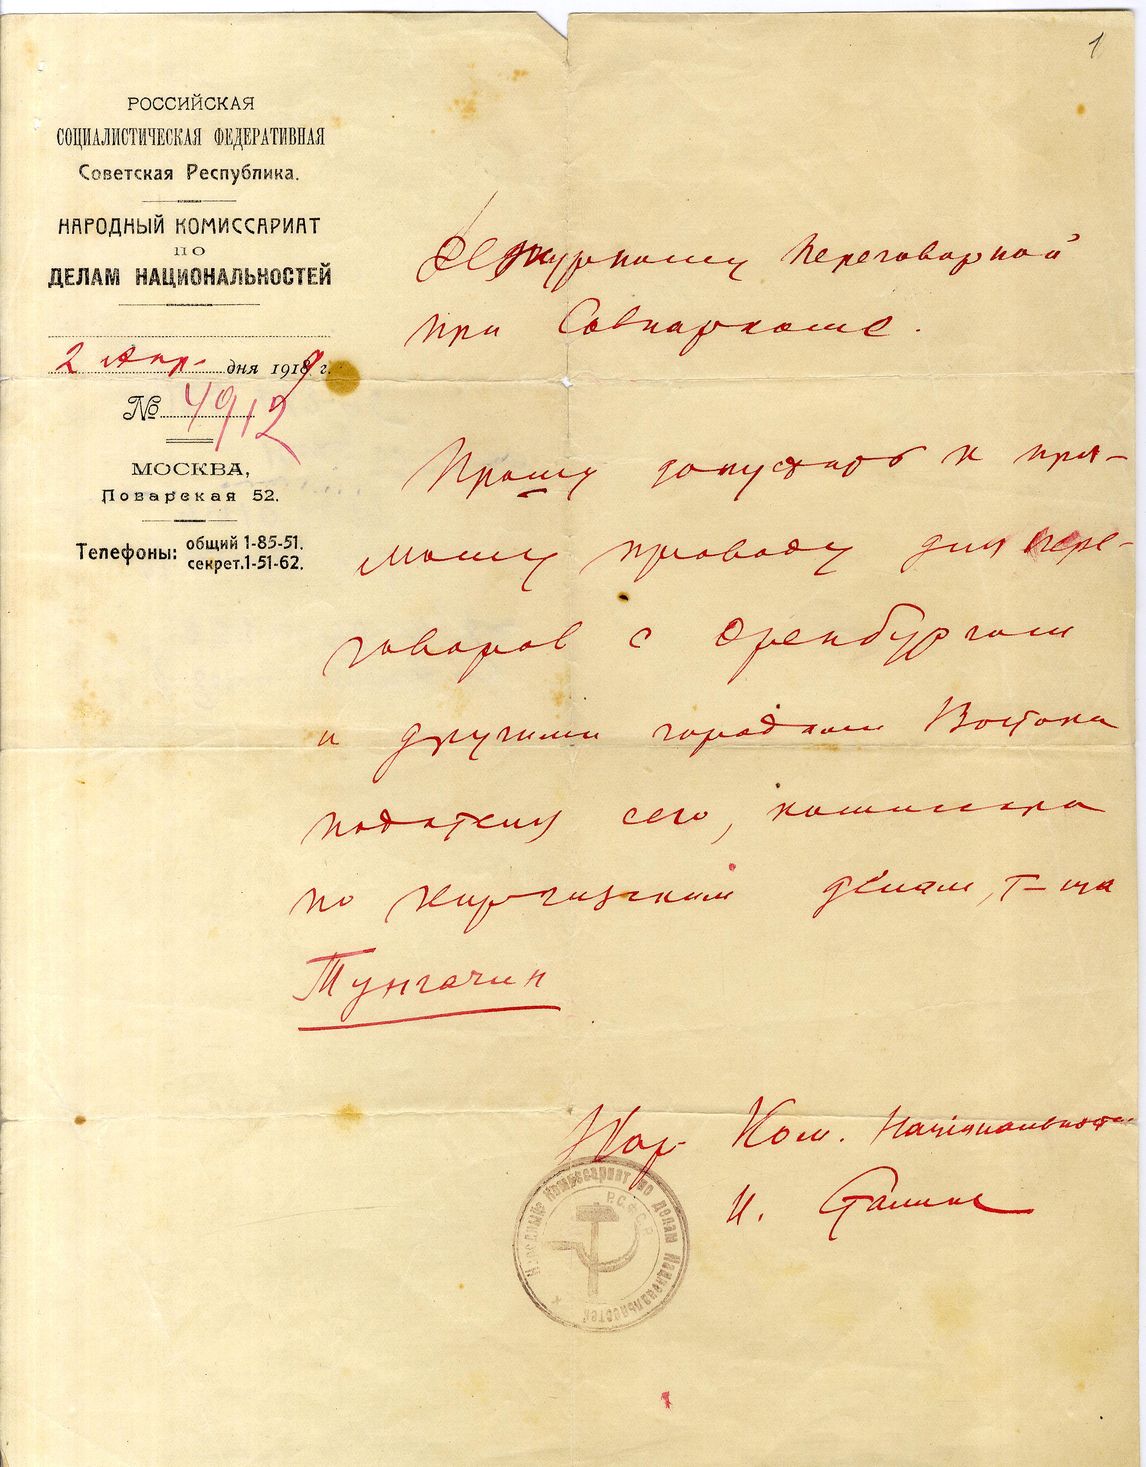 1
РОССИЙСКАЯ
СОЦИАЛИСТИЧЕСКАЯ ФЕДЕРАТИВНАЯ
Советская Республика.
НАРОДНЫЙ КОМИССАРИАТ
ПО
ДЕЛАМ НАЦИОНАЛЬНОСТЕЙ
2 Апр. дня 1919 г.
№ 4912
МОСКВА,
Поварская 52.
Телефоны: общий 1-85-51.
секрет. 1-51-62.
Дежурному переговорной
при Совнаркоме.
Прошу допустить к пря-
мому проводу для пере-
говоров с Оренбургом
и другими городами Востока
подателя сего, комиссара
по киргизским делам, т-ща
Тунгачин
Нар. Ком. Национальност
И. Сталин
Народный Комиссариат по делам Национальностей
Р.С.Ф.С.Р.